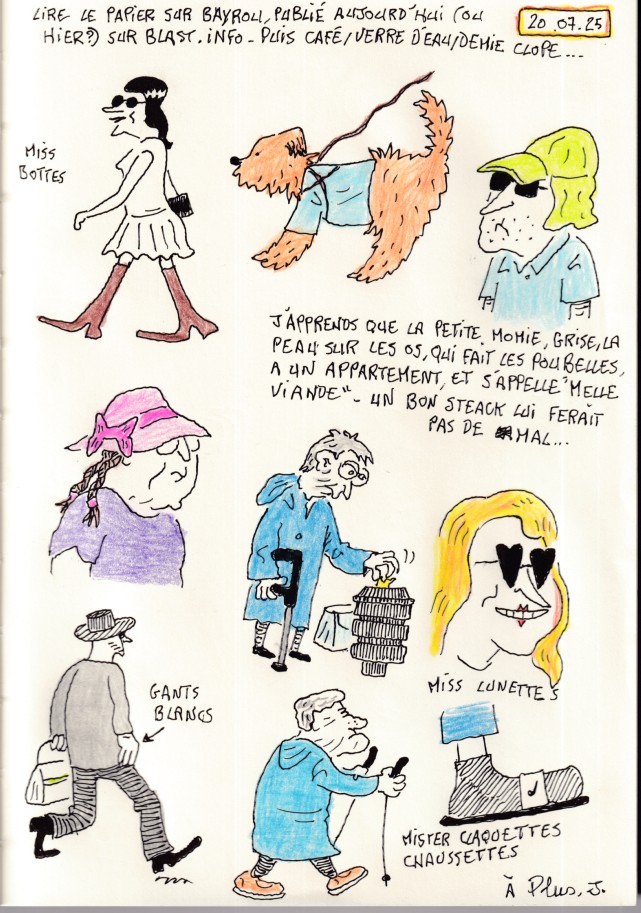 LIRE LE PAPIER SUR BAYROU, PUBLIÉ AUJOURD'HUI (OU
20.07.25
HIER?) SUR BLAST.INFO - PUIS CAFÉ/VERRE D'EAU/DEMIE CLOPE...
MISS
BOTTES
J'APPRENDS QUE LA PETITE MOMIE, GRISE, LA
PEAU SUR LES OS, QUI FAIT LES POUBELLES,
A UN APPARTEMENT, ET S'APPELLE "MELLE
VIANDE" - UN BON STEACK LUI FERAIT
PAS DE MAL...
MISS LUNETTES
GANTS
BLANCS
MISTER CLAQUETTES
CHAUSSETTES
À Plus, J.